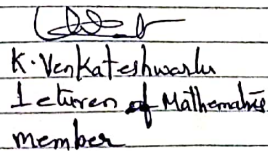 K. Venkateshwarlu
Lecturer of Mathematics
member